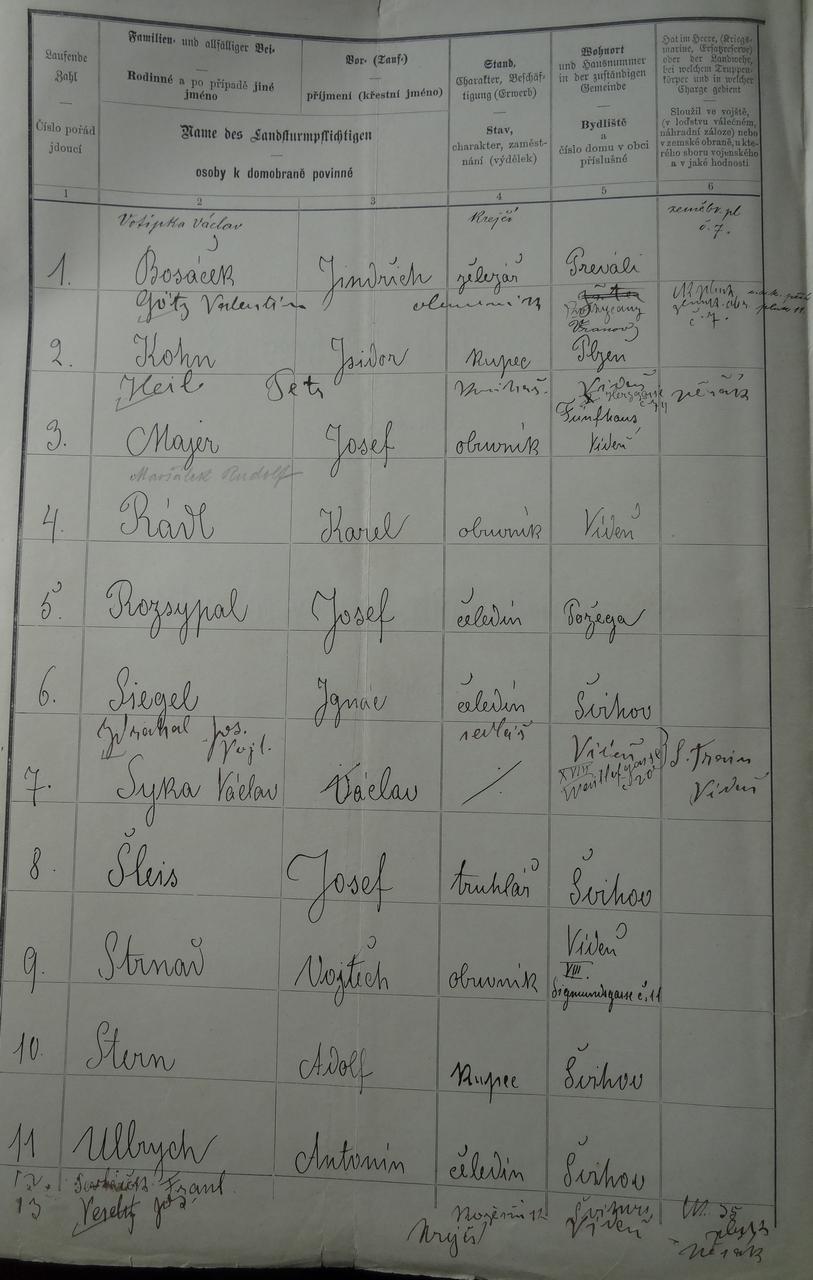 Laufende
Zahl
Číslo pořád
jdoucí
Familien- und allfälliger Bei-
Rodinné a po případě jiné
jméno
Vor- (Tauf-)
příjmení (křestní jméno)
Name des Landsturmpflichtigen
osoby k domobraně povinné
Stand,
Charakter, Beschäf-
tigung (Erwerb)
Stav,
charakter, zaměst-
nání (výdělek)
Wohnort
und Hausnummer
in der zuständigen
Gemeinde
Bydliště
a
číslo domu v obci
příslušné
Hat im Heere, (Kriegs-
marine, Ersatzreserve)
oder der Landwehr,
bei welchem Truppen-
körper und in welcher
Charge gedient
Sloužil ve vojště,
(v loďstvu válečném,
náhradní záloze) nebo
v zemské obraně, u kte-
rého sboru vojenského
a v jaké hodnosti
1 2 3 4 5 6
Votipka Václav Krejčí zeměbr. pl
č. 7.
1. Bosáček Jindřich železář Prevali
Götz Valentin
Vranov
2. Kohn Isidor kupec Plzeň
Heil Petr Vídeň pěšák
Fünfhaus
3. Majer Josef obuvník Vídeň
Maršálek Rudolf
4. Rádl Karel obuvník Vídeň
5. Rozsypal Josef čeledín Požega
6. Siegel Ignác čeledín Švihov
jos. sedlář
Vojt.
7. Syka Václav Václav Vídeň S. Train
XVIII Vídeň
8. Šleis Josef truhlář Švihov
9. Strnad Vojtěch obuvník Vídeň
VIII.
Sigmundsgasse č. 11
10. Stern Adolf kupec Švihov
11 Ulbrych Antonín čeledín Švihov
12. Frant.
13 Veselý Jos. Krejčí Vídeň
35
pluk
pěšák